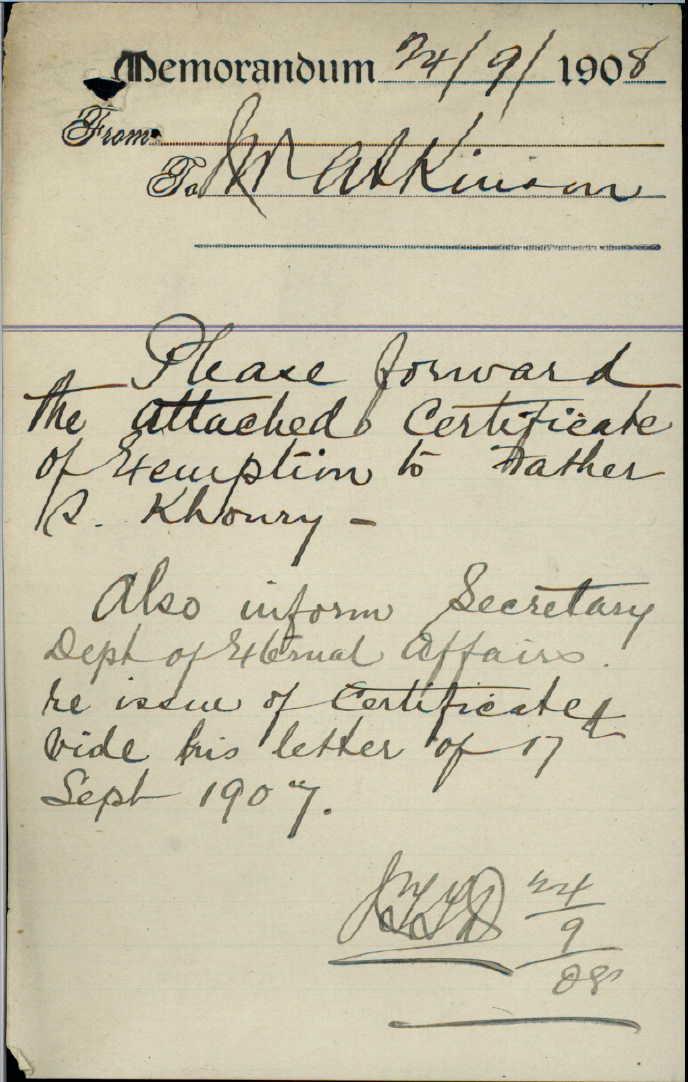 Memorandum 24/9/1908
From
To Mr Atkinson
Please forward
the attached Certificate
of Exemption to Father
S. Khoury -
Also inform Secretary
Dept of External Affairs.
re issue of Certificate
vide his letter of 17th
Sept 1907.
24
9
08